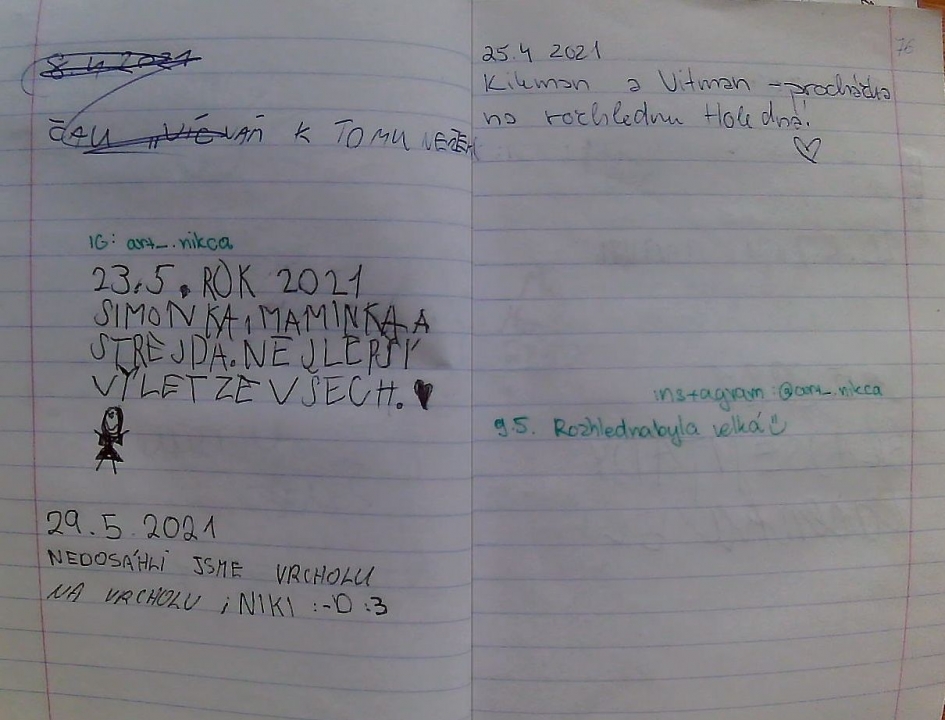 8.4 2021
ČAU VIČVAŇ K TOMU NEŘEK
IG: art_.nikca
23.5. ROK 2021
SIMONKA, MAMINKA A
STREJDA. NEJLEPSÝ
VÝLET ZE VŠECH.
29.5.2021
NEDOSÁHLI JSME VRCHOLU
NA VRCHOLU ; NIKI :-D :3
76
25.4 2021
Kikman a Vitman - procházka
na rozhlednu Holedná!
instagram: @art_.nikca
9.5. Rozhledna byla velká